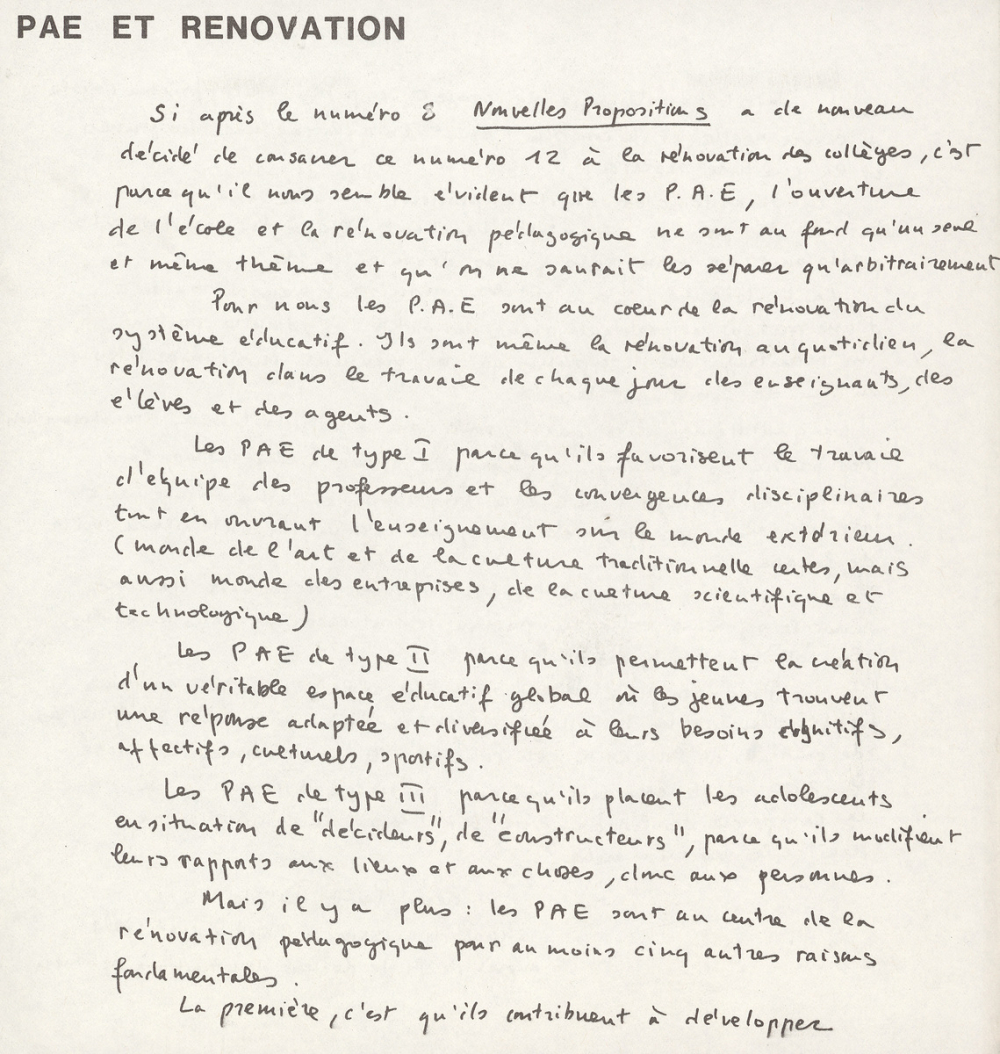 PAE ET RENOVATION
Si après le numéro 8 Nouvelles Propositions a de nouveau
décidé de consacrer ce numéro 12 à la rénovation des collèges, c'est
parce qu'il nous semble évident que les P.A.E, l'ouverture
de l'école et la rénovation pédagogique ne sont au fond qu'un seul
et même thème et qu'on ne saurait les séparer qu'arbitrairement
Pour nous les P.A.E sont au coeur de la rénovation du
système éducatif. Ils sont même la rénovation au quotidien, la
rénovation dans le travail de chaque jour des enseignants, des
élèves et des agents.
Les PAE de type I parce qu'ils favorisent le travail
d'équipe des professeurs et les convergences disciplinaires
tout en ouvrant l'enseignement sur le monde extérieur.
(monde de l'art et de la culture traditionnelle certes, mais
aussi monde des entreprises, de la culture scientifique et
technologique)
Les PAE de type II parce qu'ils permettent la création
d'un véritable espace éducatif global où les jeunes trouvent
une réponse adaptée et diversifiée à leurs besoins cognitifs,
affectifs, culturels, sportifs.
Les PAE de type III parce qu'ils placent les adolescents
en situation de "décideurs", de "constructeurs", parce qu'ils modifient
leurs rapports aux lieux et aux choses, donc aux personnes.
Mais il y a plus : les PAE sont au centre de la
rénovation pédagogique pour au moins cinq autres raisons
fondamentales.
La première, c'est qu'ils contribuent à développer